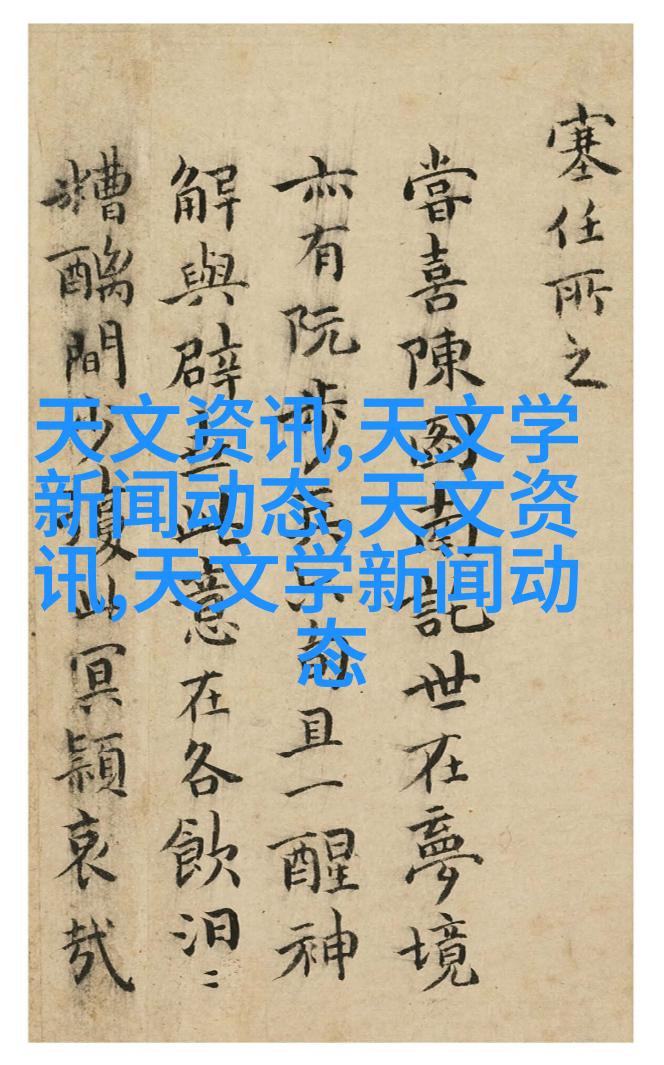 塞任所之
嘗喜陳圖南託世在夢境
亦有阮步兵且一醒神
解與辟此意在各飲汨〻
糟醨間此冥穎哀哉
天文资讯,天文学
新闻动态,天文资
讯,天文学新闻动
态